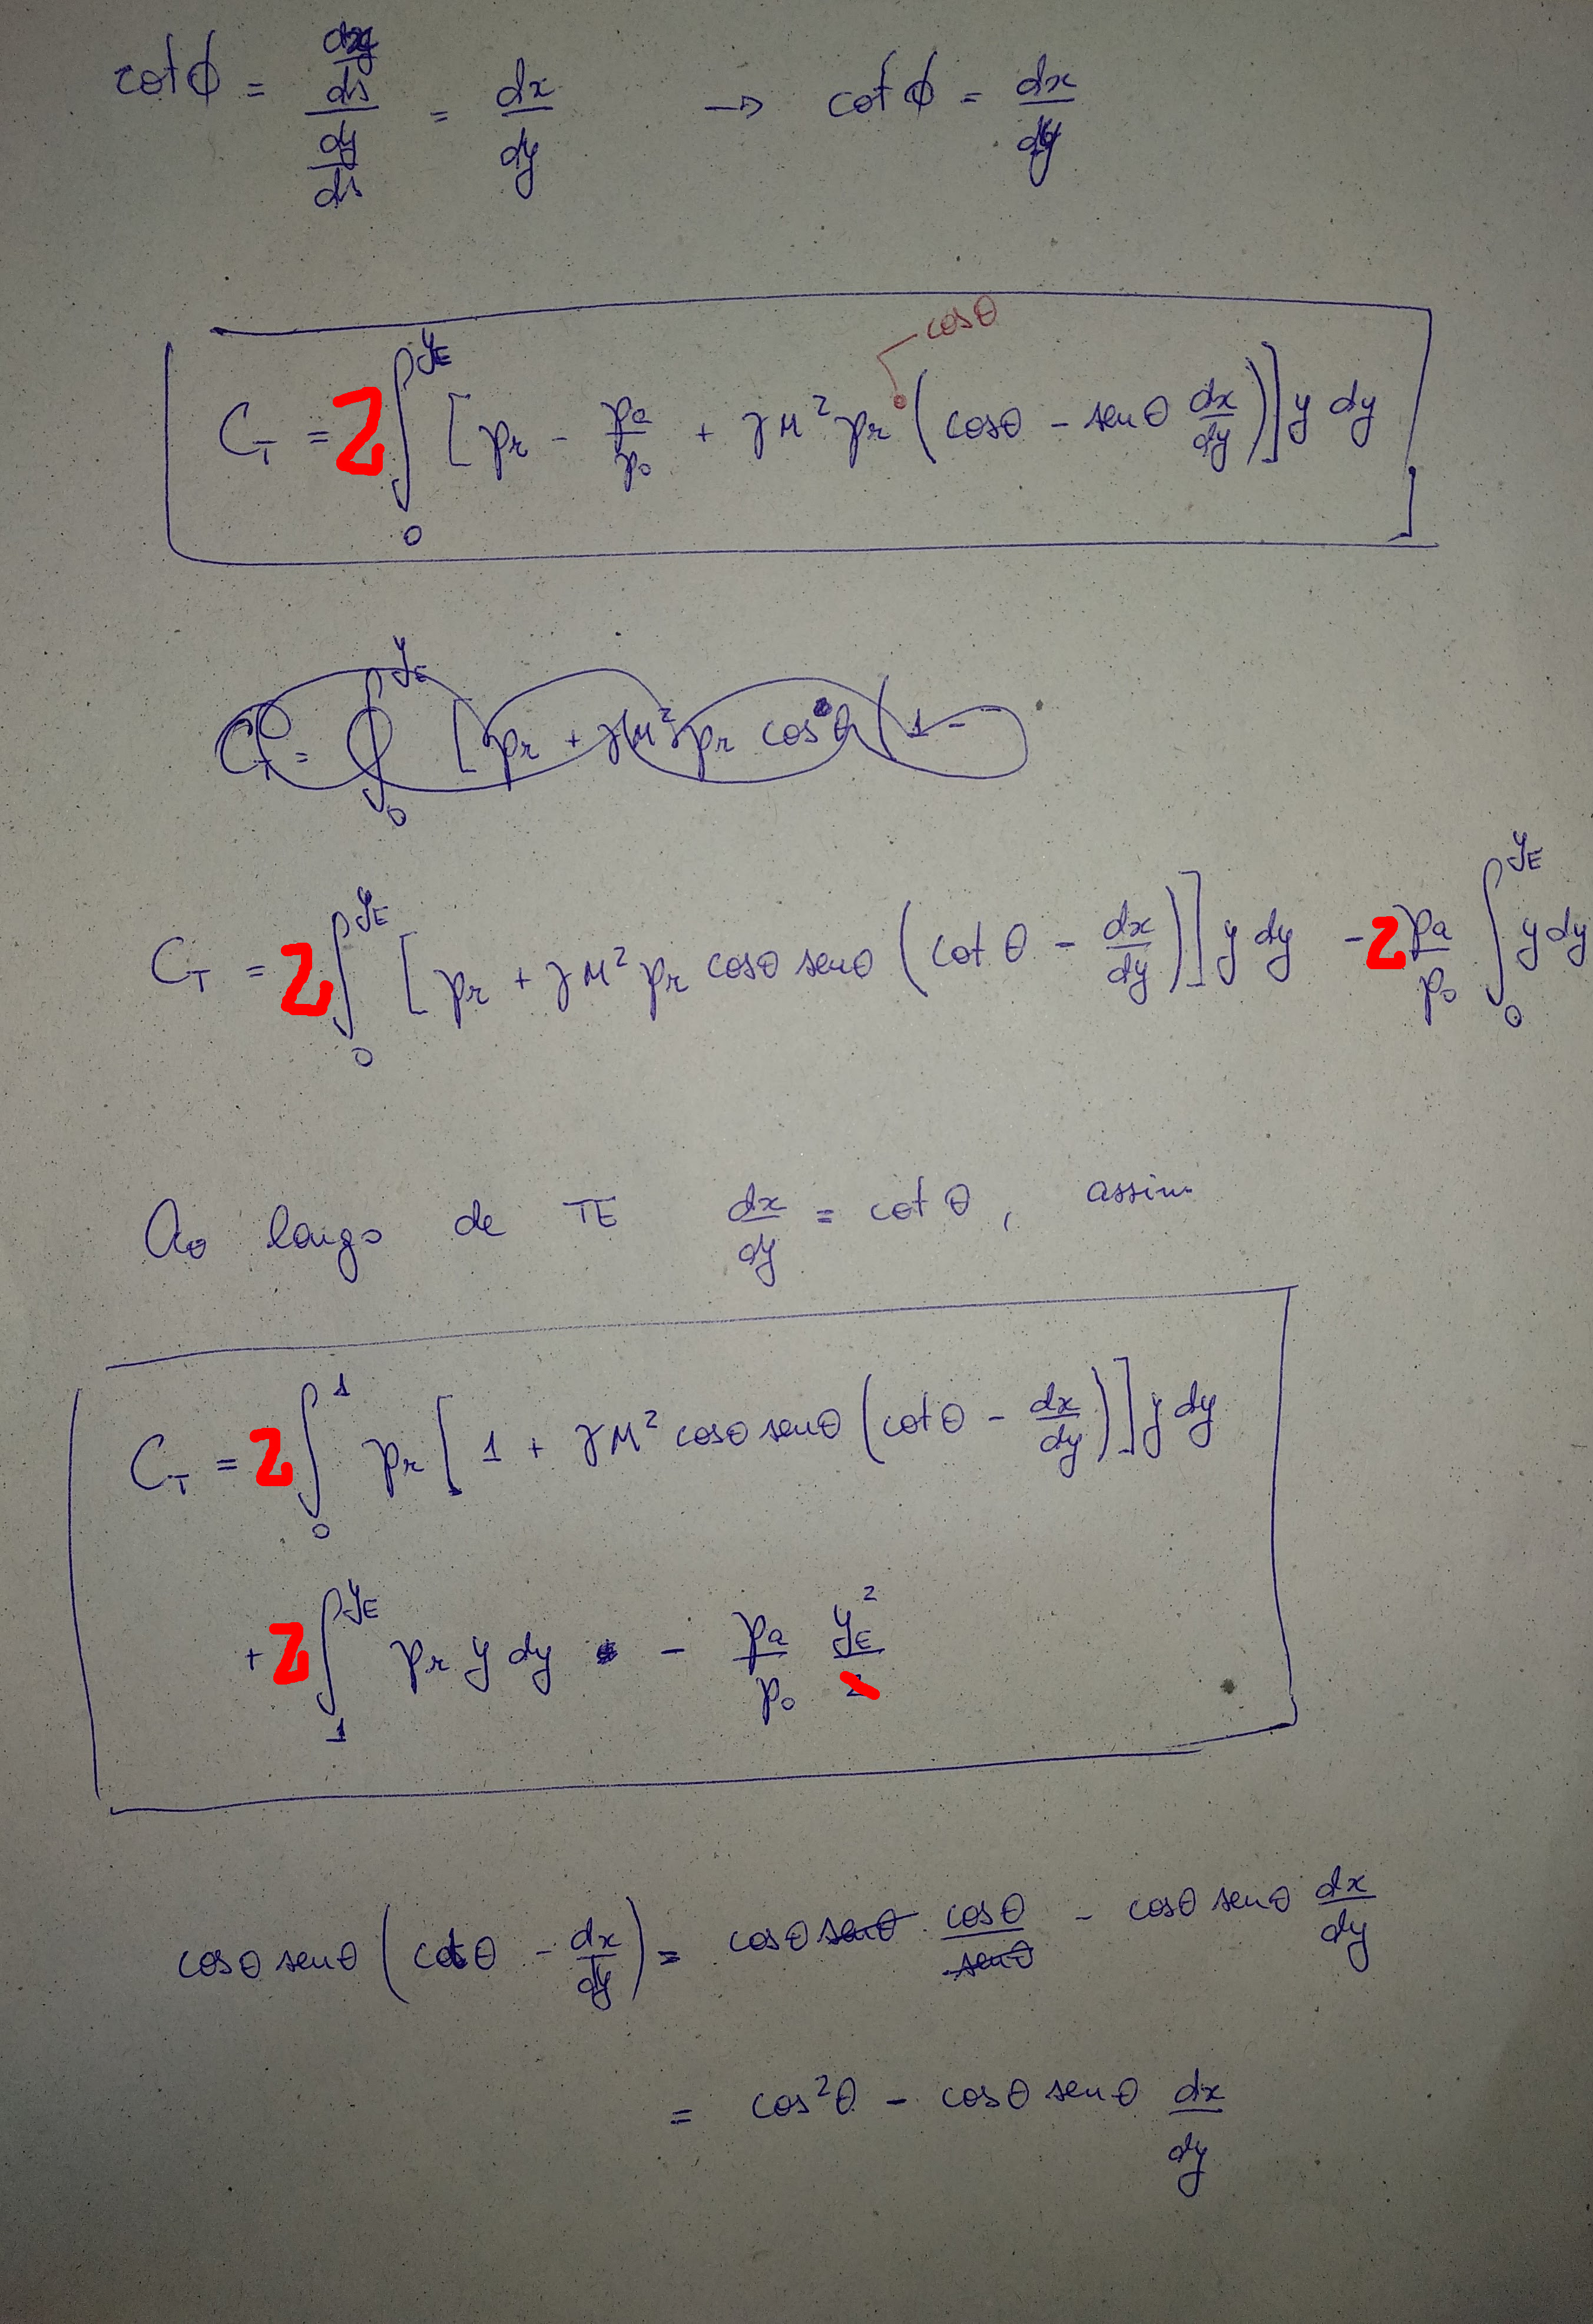 cot ϕ = (dx/ds)/(dy/ds) = dx/dy → cot ϕ = dx/dy
cos θ
C_T = 2 ∫_0^{y_E} [ p_r - p_a/p_0 + γ M² p_r ( cos θ - sen θ dx/dy ) ] y dy
C_T = ∫_0^{y_E} [ p_r + γ M² p_r cos θ ( 1 -
C_T = 2 ∫_0^{y_E} [ p_r + γ M² p_r cos θ sen θ ( cot θ - dx/dy ) ] y dy - 2 p_a/p_0 ∫_0^{y_E} y dy
Ao longo de TE dx/dy = cot θ, assim
C_T = 2 ∫_0^1 p_r [ 1 + γ M² cos θ sen θ ( cot θ - dx/dy ) ] y dy
+ 2 ∫_1^{y_E} p_r y dy - p_a/p_0 y_E²/2
cos θ sen θ ( cot θ - dx/dy ) = cos θ sen θ cos θ/sen θ - cos θ sen θ dx/dy
= cos² θ - cos θ sen θ dx/dy